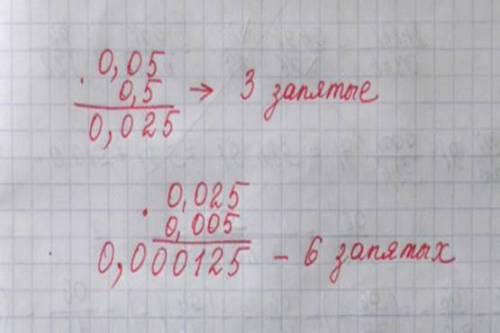 0,05
· 0,5 → 3 запятые
0,025
0,025
· 0,005
0,000125 - 6 запятых